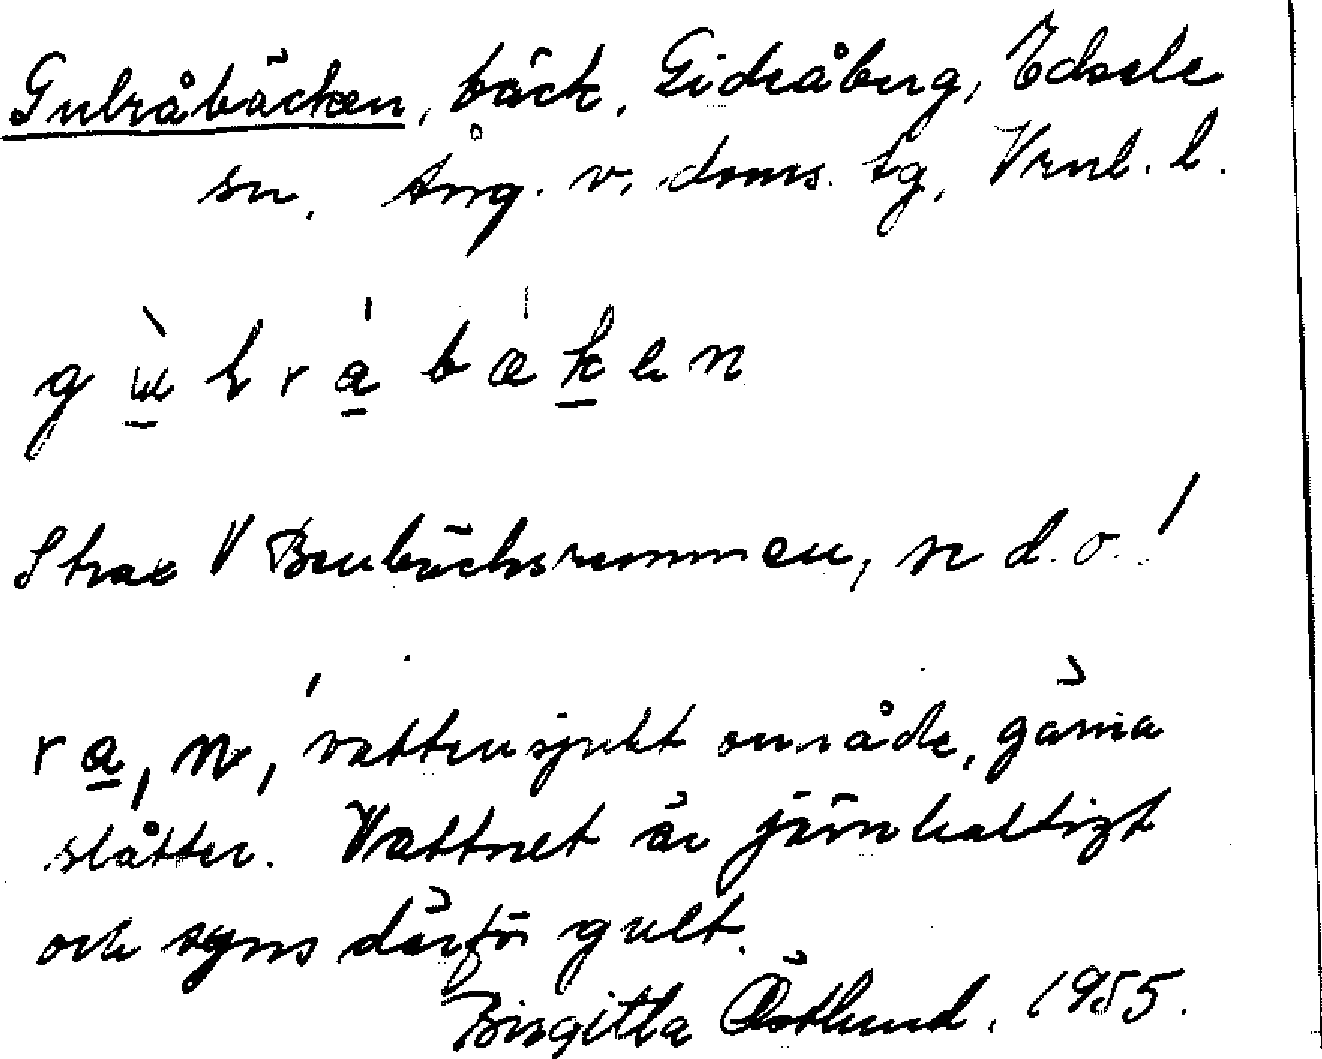 Gulråbäcken, bäck, Gideåberg, Edsele
sn. Ång. v. doms. tg, Vrnl. l.
Strax V Benbäcksrommen, n d.o.!
ra, n, vattensjukt område, gärna
slåtter. Vattnet är järnhaltigt
och syns därför gult.
Birgitta Östlund. 1955.